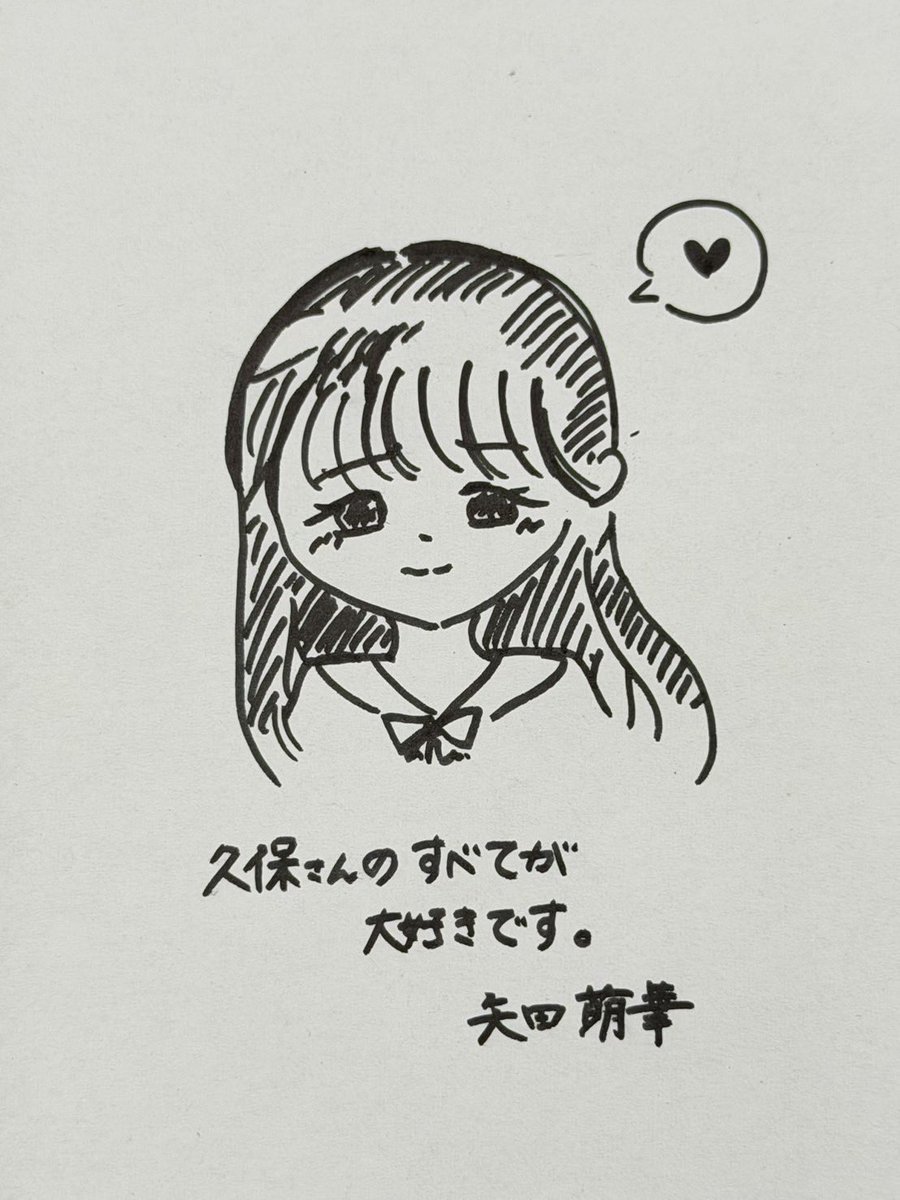 久保さんのすべてが
大好きです。
矢田萌華